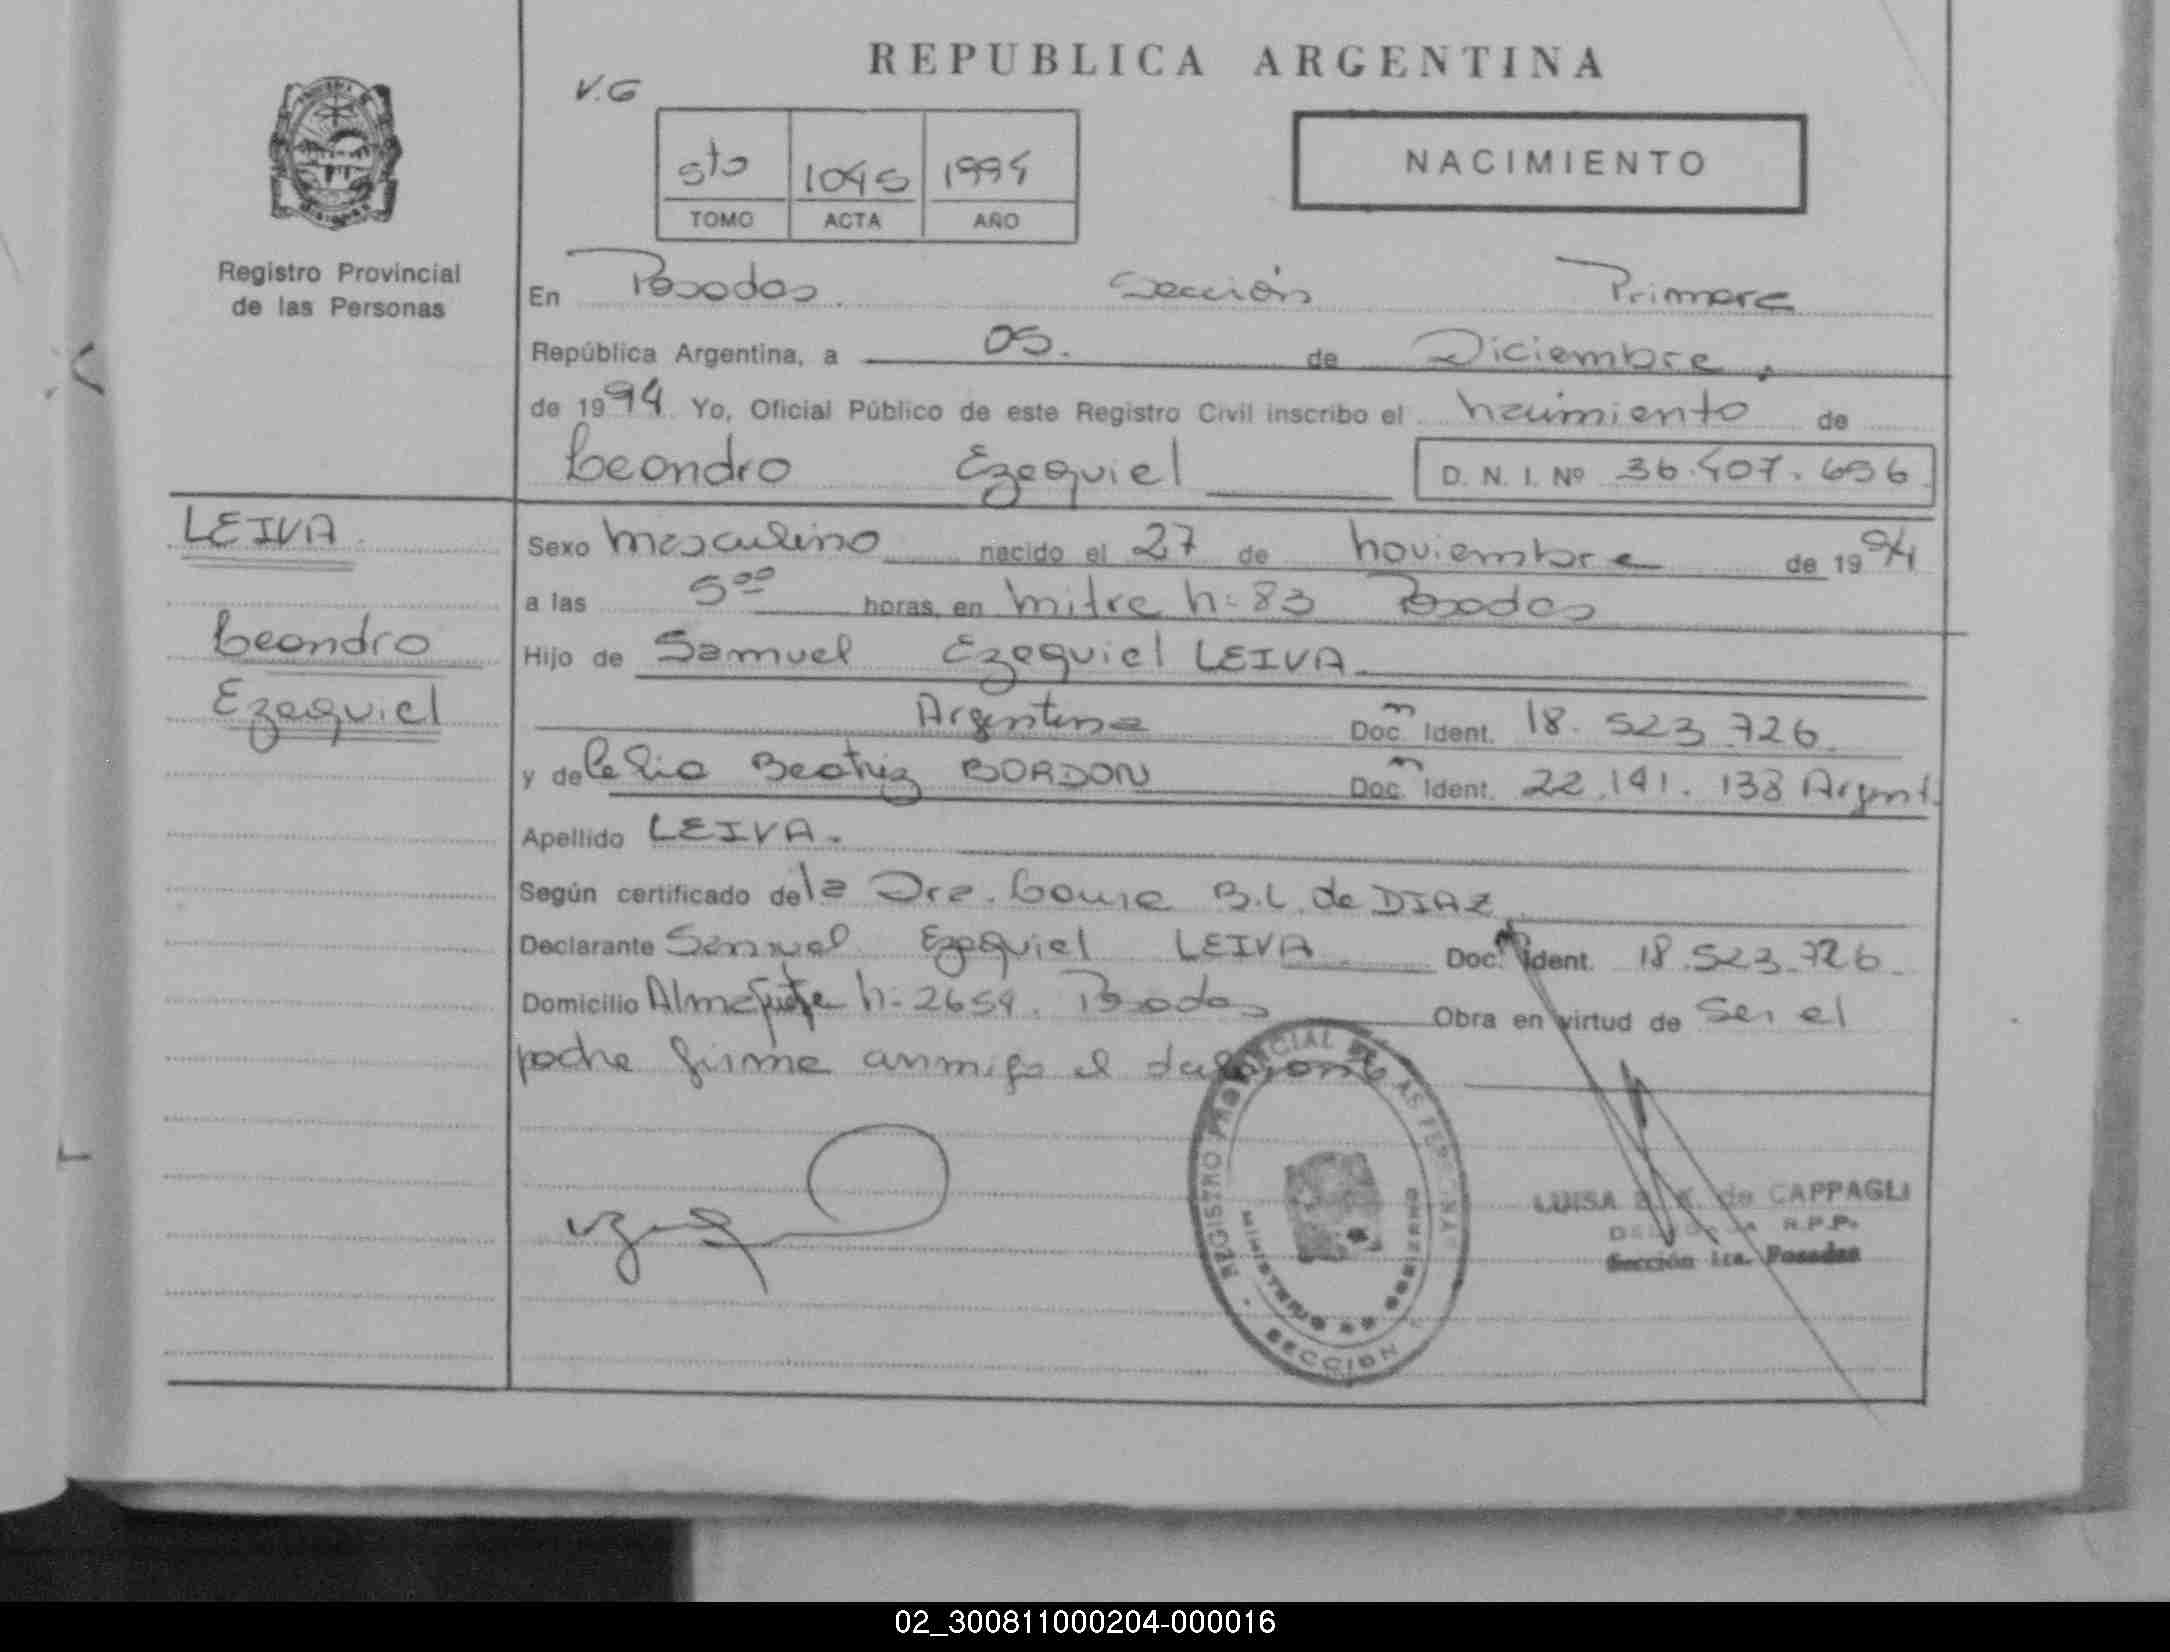 REPUBLICA ARGENTINA
V.G
5to 1045 1994
TOMO ACTA AÑO
NACIMIENTO
Registro Provincial
de las Personas
En Posadas Sección Primera
República Argentina, a 05. de Diciembre,
de 1994 Yo, Oficial Público de este Registro Civil inscribo el nacimiento de
Leandro Ezequiel D. N. I. Nº 36.407.696
LEIVA
Leandro
Ezequiel
Sexo masculino nacido el 27 de noviembre de 1994
a las 5 00 horas, en mitre n- 83 Posadas
Hijo de Samuel Ezequiel LEIVA
Argentina Doc. m Ident. 18.523.726
y de Celia Beatriz BORDON Doc. m Ident. 22.141.138 Argent.
Apellido LEIVA.
Según certificado de la Dra. B.L. de DIAZ
Declarante Samuel Ezequiel LEIVA Doc. Ident. 18.523.726
Domicilio Almafuerte n- 2654. Posadas Obra en virtud de ser el
padre firma conmigo el declarante
REGISTRO PROVINCIAL DE LAS PERSONAS
MINISTERIO DE GOBIERNO
SECCION
LUISA de CAPPAGLI
R.P.P.
Sección 1ra. Posadas
02_300811000204-000016